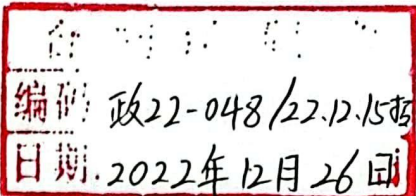 编码 政22-048/22.12.15招
日期.2022年12月26日